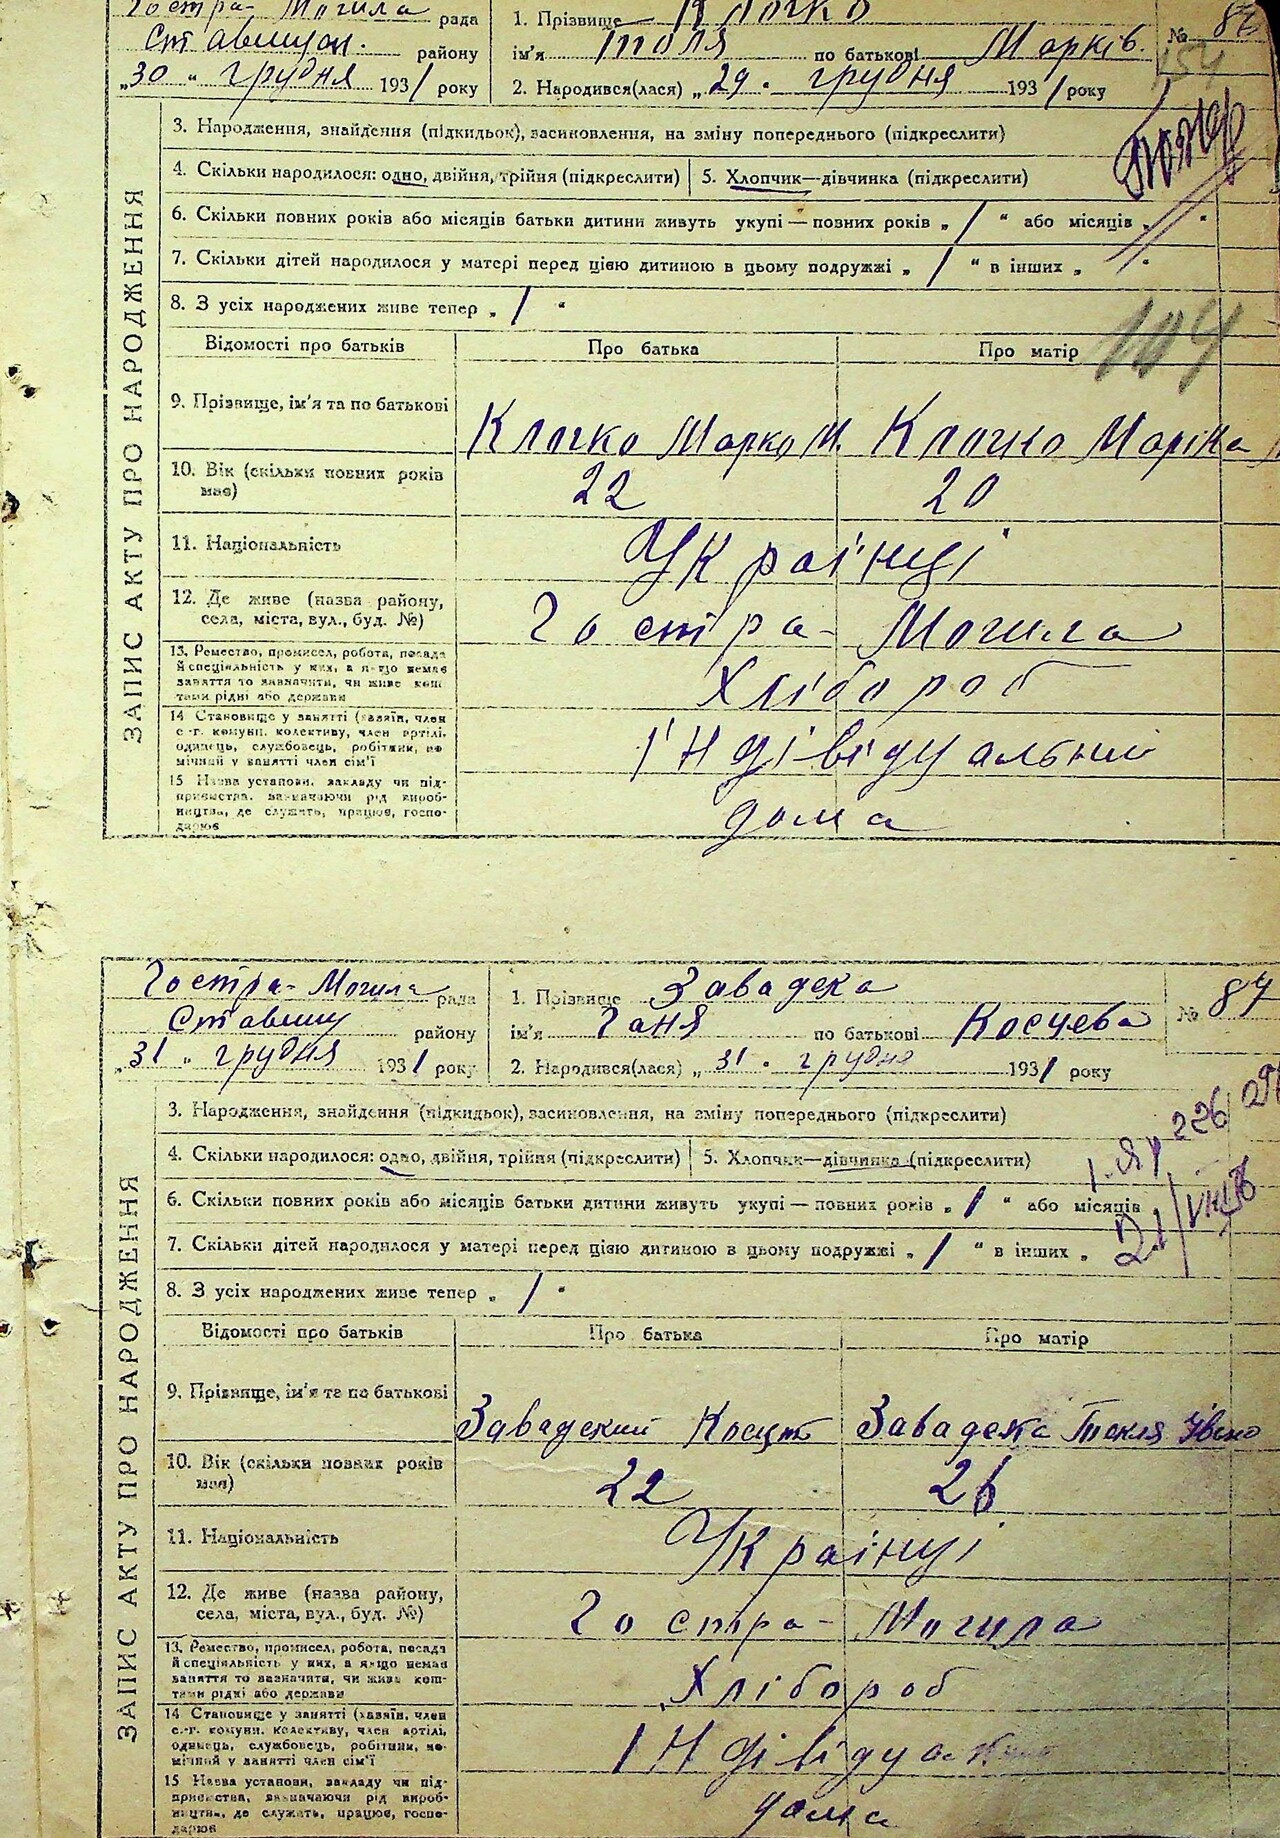 Гостра-Могила рада
Ставищан. району
„30" грудня 1931 року
1. Прізвище Клочко
ім'я Толя по батькові Марків.
2. Народився(лася) „29" грудня 1931 року
№ 86
154
ЗАПИС АКТУ ПРО НАРОДЖЕННЯ
3. Народження, знайдення (підкидьок), засиновлення, на зміну попереднього (підкреслити)
4. Скільки народилося: одно, двійня, трійня (підкреслити) 5. Хлопчик—дівчинка (підкреслити)
6. Скільки повних років або місяців батьки дитини живуть укупі — повних років „1" або місяців „ "
7. Скільки дітей народилося у матері перед цією дитиною в цьому подружжі „1" в інших „ "
8. З усіх народжених живе тепер „1"
Відомості про батьків Про батька Про матір
104
9. Прізвище, ім'я та по батькові Клочко Марко М. Клочко Маріна
10. Вік (скільки повних років має) 22 20
11. Національність Українці
12. Де живе (назва району,
села, міста, вул., буд. №) Гостра-Могила
13. Ремество, промисел, робота, посада
й спеціяльність у них, а якщо немає
заняття то зазначити, чи живе кош-
тами рідні або держави Хлібороб
14 Становище у занятті (хазяїн, член
с.-г. комуни, колективу, член артілі,
одинець, службовець, робітник, по-
мічний у занятті член сім'ї Індівідуальний
15 Назва установи, закладу чи під-
приємства, зазначаючи рід вироб-
ництва, де служить, працює, госпо-
дарює дома
Гостра-Могила рада
Ставищ району
„31" грудня 1931 року
1. Прізвище Завадска
ім'я Ганя по батькові Косцева
2. Народився(лася) „31" грудня 1931 року
№ 87
ЗАПИС АКТУ ПРО НАРОДЖЕННЯ
3. Народження, знайдення (підкидьок), засиновлення, на зміну попереднього (підкреслити)
4. Скільки народилося: одно, двійня, трійня (підкреслити) 5. Хлопчик—дівчинка (підкреслити)
6. Скільки повних років або місяців батьки дитини живуть укупі — повних років „1" або місяців
7. Скільки дітей народилося у матері перед цією дитиною в цьому подружжі „1" в інших „
8. З усіх народжених живе тепер „1"
Відомості про батьків Про батька Про матір
9. Прізвище, ім'я та по батькові Завадский Завадска Текля Івано
10. Вік (скільки повних років має) 22 26
11. Національність Українці
12. Де живе (назва району,
села, міста, вул., буд. №) Гостра-Могила
13. Ремество, промисел, робота, посада
й спеціяльність у них, а якщо немає
заняття то зазначити, чи живе кош-
тами рідні або держави Хлібороб
14 Становище у занятті (хазяїн, член
с.-г. комуни, колективу, член артілі,
одинець, службовець, робітник, по-
мічний у занятті член сім'ї
15 Назва установи, закладу чи під-
приємства, зазначаючи рід вироб-
ництва, де служить, працює, госпо-
дарює дома